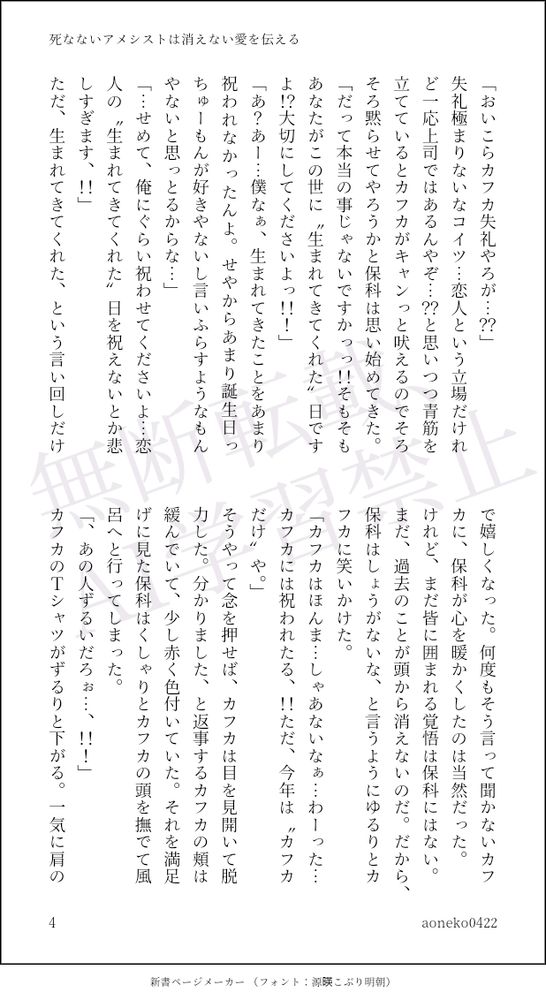 死なないアメシストは消えない愛を伝える
「おいこらカフカ失礼やろが…??」
失礼極まりないなコイツ…恋人という立場だけれ
ど一応上司ではあるんやぞ…??と思いつつ青筋を
立てているとカフカがキャンっと吠えるのでそろ
そろ黙らせてやろうかと保科は思い始めてきた。
「だって本当の事じゃないですかっっ!!そもそも
あなたがこの世に〝生まれてきてくれた〟日です
よ!?大切にしてくださいよっ!!！」
「あ？あー…僕なぁ、生まれてきたことをあまり
祝われなかったんよ。せやからあまり誕生日っ
ちゅーもんが好きやないし言いふらすようなもん
やないと思っとるからな…」
「…せめて、俺にぐらい祝わせてくださいよ…恋
人の〝生まれてきてくれた〟日を祝えないとか悲
しすぎます、!!」
ただ、生まれてきてくれた、という言い回しだけ
で嬉しくなった。何度もそう言って聞かないカフ
カに、保科が心を暖かくしたのは当然だった。
けれど、まだ皆に囲まれる覚悟は保科にはない。
まだ、過去のことが頭から消えないのだ。だから、
保科はしょうがないな、と言うようにゆるりとカ
フカに笑いかけた。
「カフカはほんま…しゃあないなぁ…わーった…
カフカには祝われたる、!!ただ、今年は〝カフカ
だけ〟や。」
そうやって念を押せば、カフカは目を見開いて脱
力した。分かりました、と返事するカフカの頬は
緩んでいて、少し赤く色付いていた。それを満足
げに見た保科はくしゃりとカフカの頭を撫でて風
呂へと行ってしまった。
「、あの人ずるいだろぉ…、!!！」
カフカのTシャツがずるりと下がる。一気に肩の
無断転載、
AI学習禁止
4
aoneko0422
新書ページメーカー （フォント：源暎こぶり明朝）